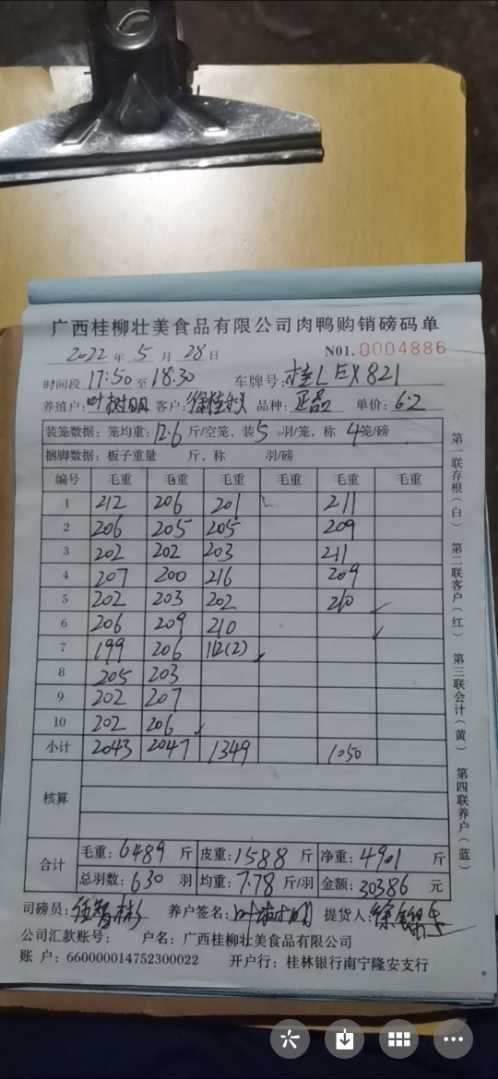 广西桂柳壮美食品有限公司肉鸭购销磅码单
2022年5月28日 N01.0004886
时间段17:50至18:30 车牌号:桂LEX821
养殖户:叶树明 客户: 品种:正品 单价:6.2
装笼数据:笼均重:12.6斤/空笼,装5羽/笼,称4笼/磅
捆脚数据:板子重量 斤,称 羽/磅
编号 毛重 毛重 毛重 毛重 毛重 毛重
1 212 206 201 211
2 206 205 205 209
3 202 202 203 211
4 207 200 216 209
5 202 203 202 210
6 206 209 210
7 199 206 112(2)
8 205 203
9 202 207
10 202 206
小计 2043 2047 1349 1050
核算
合计 毛重:6489斤 皮重:1588斤 净重:4901斤
总羽数:630羽 均重:7.78斤/羽 金额:30386元
司磅员: 养户签名:叶树明 提货人:
公司汇款账号: 户名:广西桂柳壮美食品有限公司
账 户:660000014752300022 开户行:桂林银行南宁隆安支行
第一联存根(白) 第二联客户(红) 第三联会计(黄) 第四联养户(蓝)